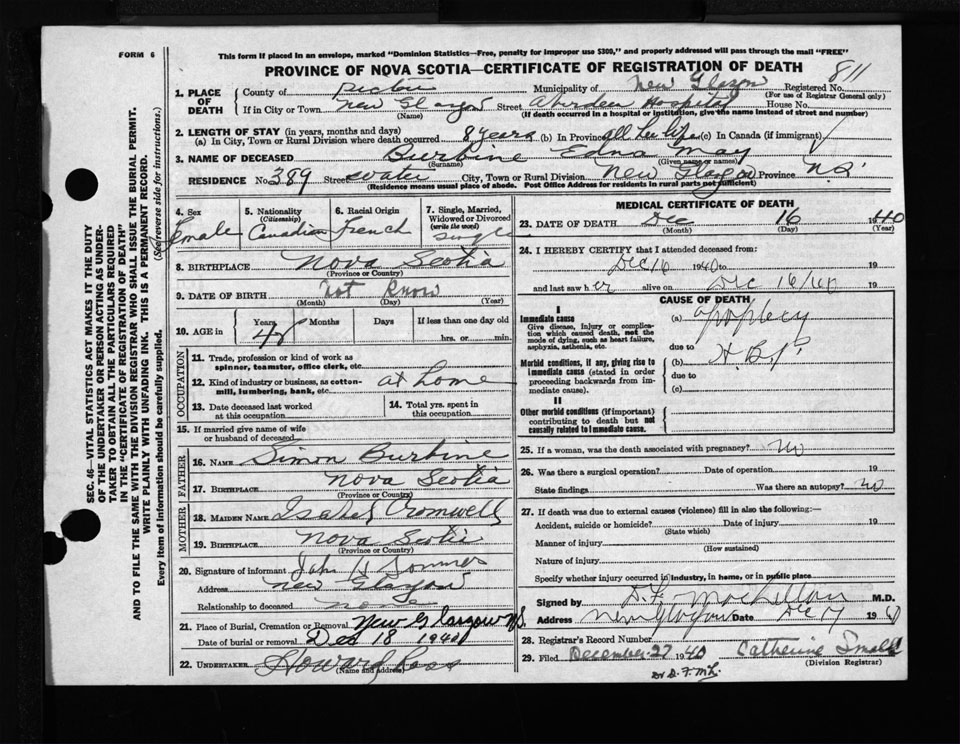 FORM 6
This form if placed in an envelope, marked "Dominion Statistics—Free, penalty for improper use $300," and properly addressed will pass through the mail "FREE"
PROVINCE OF NOVA SCOTIA—CERTIFICATE OF REGISTRATION OF DEATH
811
1. PLACE OF DEATH
County of Pictou Municipality of New Glasgow Registered No.
(For use of Registrar General only)
If in City or Town New Glasgow Street Aberdeen Hospital House No.
(Name) (If death occurred in a hospital or institution, give the name instead of street and number)
2. LENGTH OF STAY (in years, months and days)
(a) In City, Town or Rural Division where death occurred 8 years (b) In Province all her life (c) In Canada (if immigrant)
3. NAME OF DECEASED Burbine Edna May
(Surname) (Given name or names)
RESIDENCE No. 389 Street Water City, Town or Rural Division New Glasgow Province N.S.
(Residence means usual place of abode. Post Office Address for residents in rural parts not sufficient)
4. Sex Female
5. Nationality (Citizenship) Canadian
6. Racial Origin French
7. Single, Married, Widowed or Divorced (write the word) Single
8. BIRTHPLACE Nova Scotia
(Province or Country)
9. DATE OF BIRTH Not Know
(Month) (Day) (Year)
10. AGE in Years 48 Months Days If less than one day old
hrs. or min.
OCCUPATION
11. Trade, profession or kind of work as spinner, teamster, office clerk, etc.
12. Kind of industry or business, as cotton-mill, lumbering, bank, etc. at home
13. Date deceased last worked at this occupation
14. Total yrs. spent in this occupation
15. If married give name of wife or husband of deceased
FATHER
16. NAME Simon Burbine
17. BIRTHPLACE Nova Scotia
(Province or Country)
MOTHER
18. MAIDEN NAME Isabel Cromwell
19. BIRTHPLACE Nova Scotia
(Province or Country)
20. Signature of informant John
Address New Glasgow
Relationship to deceased none
21. Place of Burial, Cremation or Removal New Glasgow N.S.
Date of burial or removal Dec 18 1940
22. UNDERTAKER Howard Ross
MEDICAL CERTIFICATE OF DEATH
23. DATE OF DEATH Dec 16 1940
(Month) (Day) (Year)
24. I HEREBY CERTIFY that I attended deceased from:
Dec 16 1940 to 19
and last saw her alive on Dec 16/40 19
CAUSE OF DEATH
I
Immediate cause
Give disease, injury or complication which caused death, not the mode of dying, such as heart failure, asphyxia, asthenia, etc.
(a)
due to
Morbid conditions, if any, giving rise to immediate cause (stated in order proceeding backwards from immediate cause).
(b) H.B.P.
due to
(c)
II
Other morbid conditions (if important) contributing to death but not causally related to immediate cause.
25. If a woman, was the death associated with pregnancy? No
26. Was there a surgical operation? Date of operation 19
State findings Was there an autopsy? No
27. If death was due to external causes (violence) fill in also the following:—
Accident, suicide or homicide? Date of injury 19
(State which)
Manner of injury
(How sustained)
Nature of injury
Specify whether injury occurred in industry, in home, or in public place
Signed by D. F. MacLellan M.D.
Address New Glasgow Date Dec 17 1940
28. Registrar's Record Number
29. Filed December 27 1940 Catherine Small
(Division Registrar)
Dr D. F. McL.
SEC. 46—VITAL STATISTICS ACT MAKES IT THE DUTY
OF THE UNDERTAKER OR PERSON ACTING AS UNDER-
TAKER TO OBTAIN ALL THE PARTICULARS REQUIRED
IN THE "CERTIFICATE OF REGISTRATION OF DEATH"
AND TO FILE THE SAME WITH THE DIVISION REGISTRAR WHO SHALL ISSUE THE BURIAL PERMIT.
WRITE PLAINLY WITH UNFADING INK. THIS IS A PERMANENT RECORD.
Every item of information should be carefully supplied. (See reverse side for instructions.)